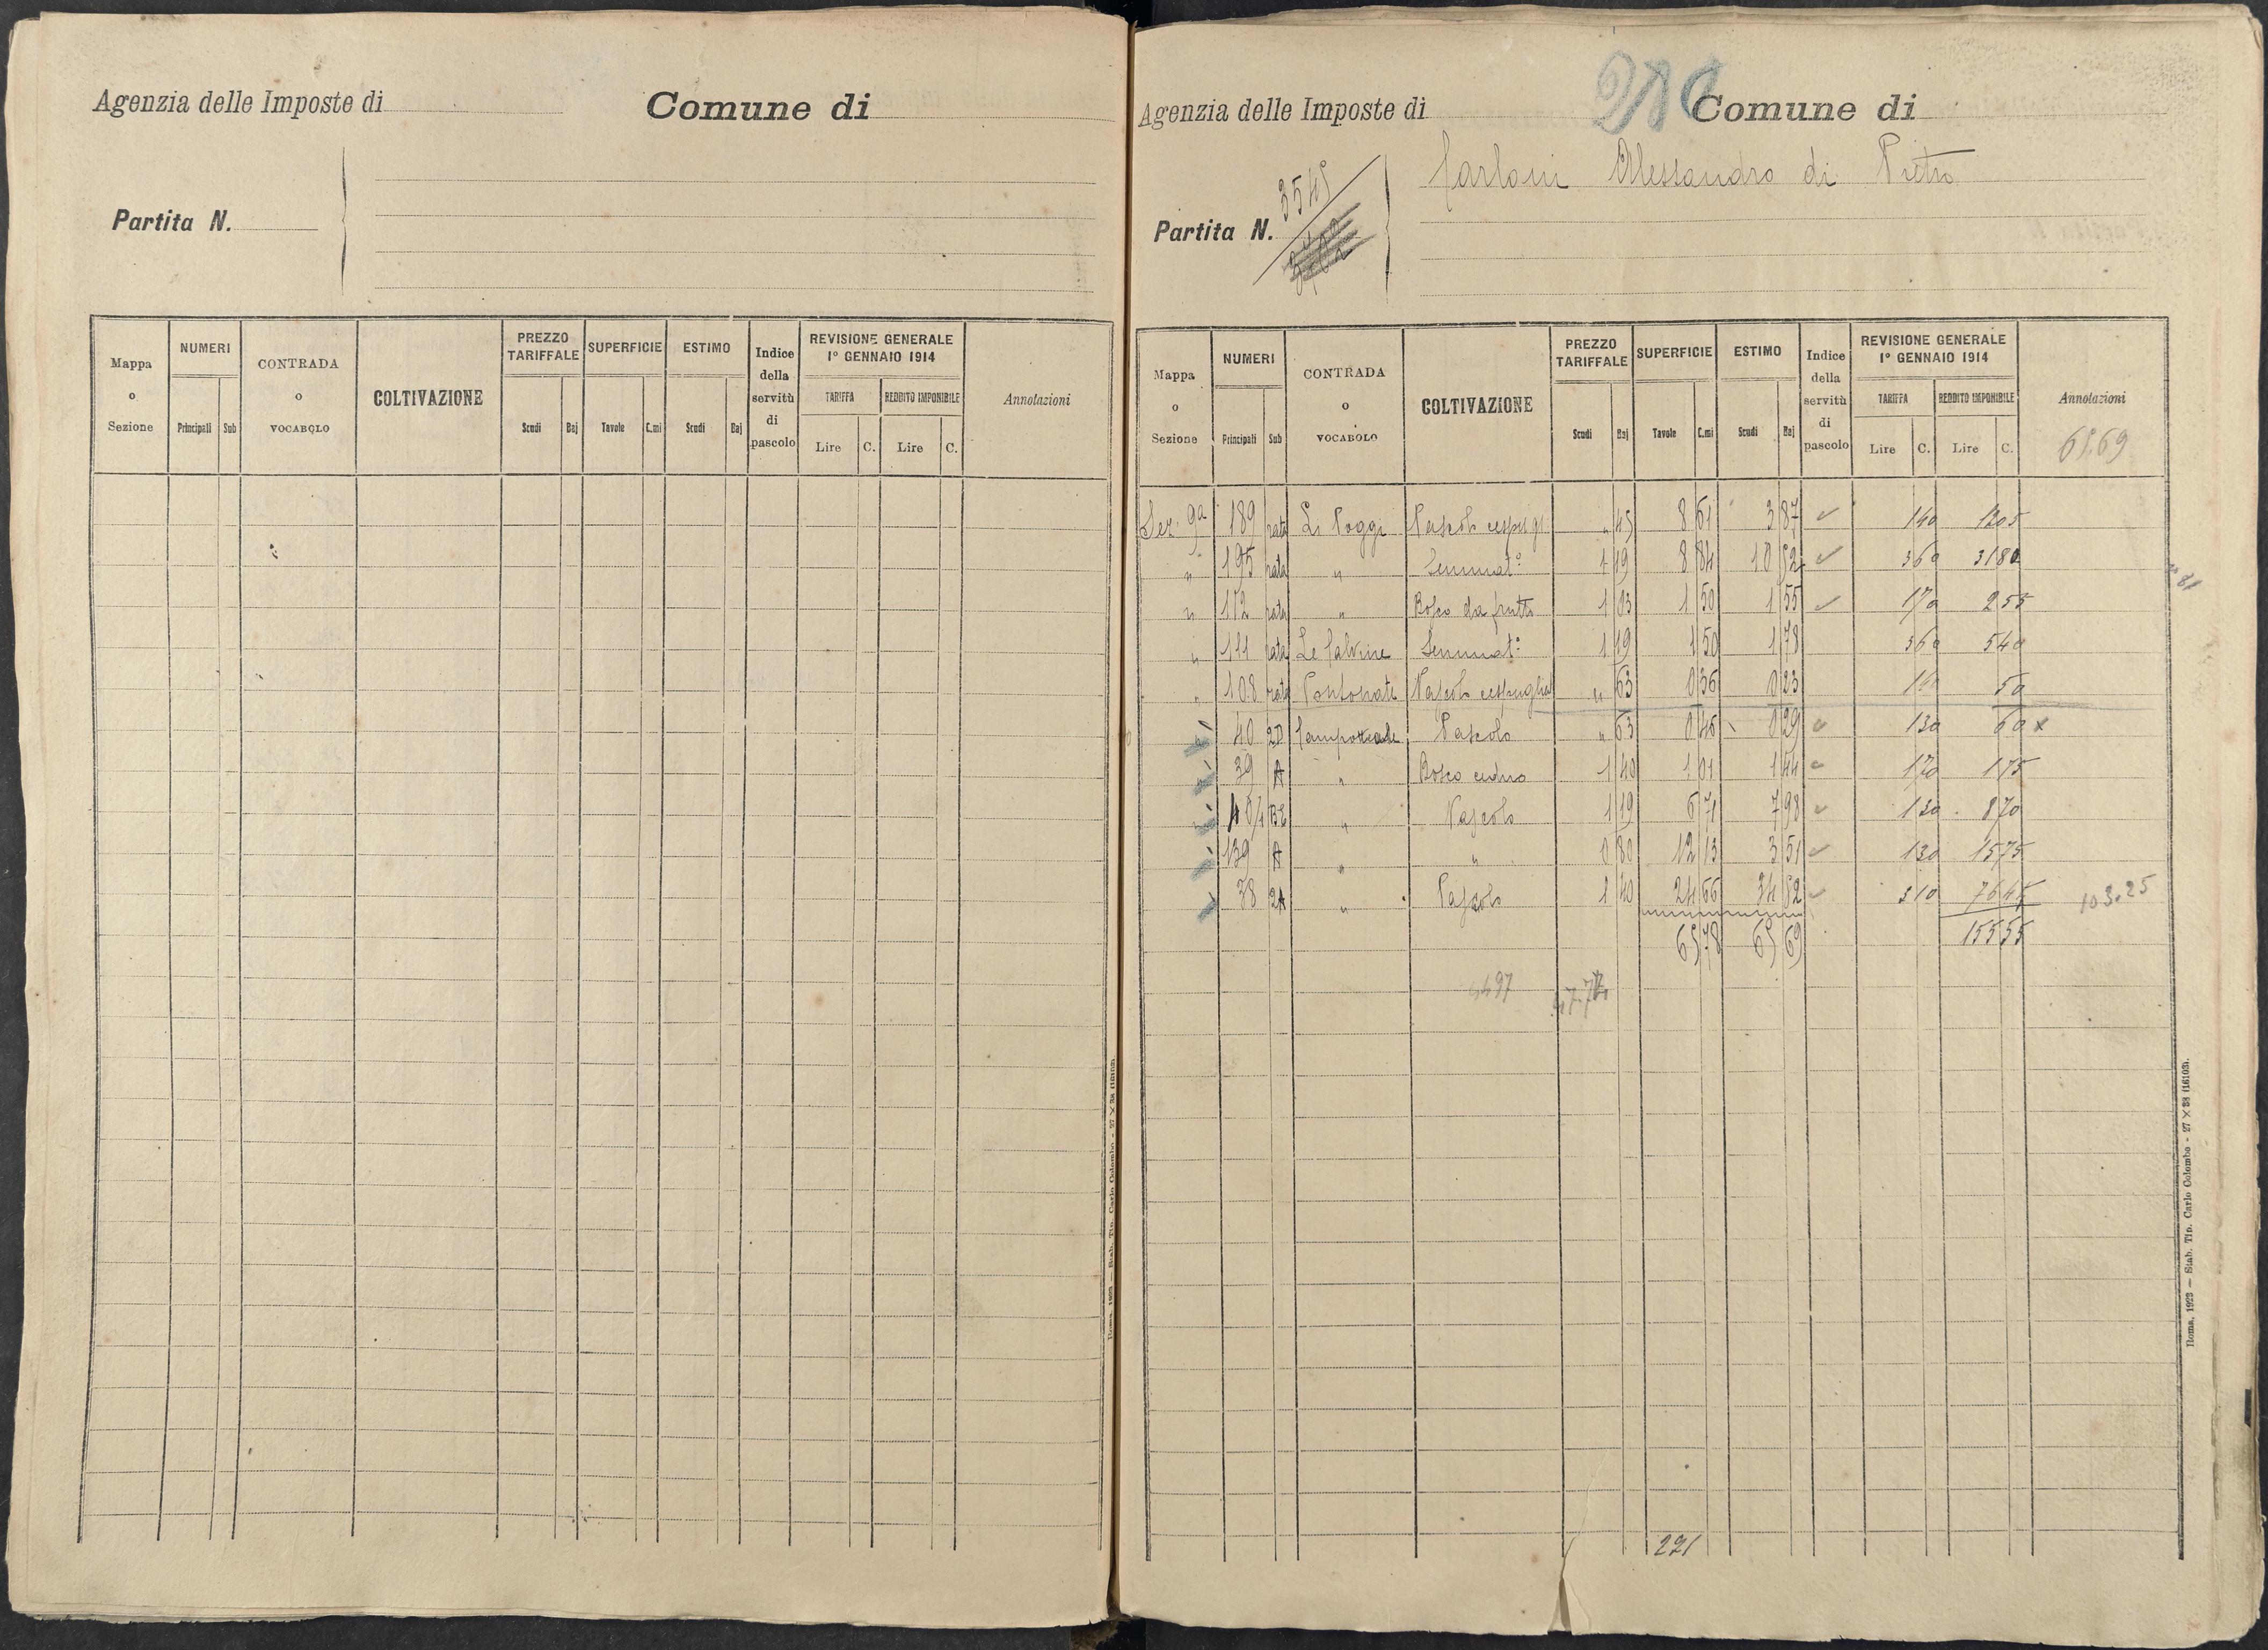 Agenzia delle Imposte di Comune di
Partita N.
Mappa o Sezione NUMERI Principali Sub CONTRADA o VOCABOLO COLTIVAZIONE PREZZO TARIFFALE Scudi Baj SUPERFICIE Tavole C.mi ESTIMO Scudi Baj Indice della servitù di pascolo REVISIONE GENERALE 1° GENNAIO 1914 TARIFFA Lire C. REDDITO IMPONIBILE Lire C. Annotazioni
Roma, 1923 — Stab. Tip. Carlo Colombo - 27 × 38 (16103).
Agenzia delle Imposte di Comune di
210
Carloni Alessandro di Pietro
Partita N. 3545
Mappa o Sezione NUMERI Principali Sub CONTRADA o VOCABOLO COLTIVAZIONE PREZZO TARIFFALE Scudi Baj SUPERFICIE Tavole C.mi ESTIMO Scudi Baj Indice della servitù di pascolo REVISIONE GENERALE 1° GENNAIO 1914 TARIFFA Lire C. REDDITO IMPONIBILE Lire C. Annotazioni
65.69
Sez. 9a 189 rata Li Poggi Pascolo cespugl „ 45 8 61 3 87 ✓ 140 1205
„ 195 rata „ Seminat° 1 19 8 84 10 52 ✓ 360 3180
„ 172 rata „ Bosco da frutto 1 03 1 50 1 55 ✓ 170 255
„ 111 rata Le Salvine Seminat° 1 19 1 50 1 78 360 540
„ 108 rata Pontonati Pascolo cespugliat „ 63 0 36 0 23 140 50
„ 40 2D Campotteale Pascolo „ 63 0 46 0 29 ✓ 130 60 x
„ 39 A „ Bosco ceduo 1 40 1 01 1 44 ✓ 170 175
„ 40/1 BE „ Pascolo 1 19 6 71 7 98 ✓ 130 870
„ 139 A „ „ 0 80 12 13 3 51 ✓ 130 1575
„ 38 2A „ Pascolo 1 40 24 66 34 52 ✓ 310 7645 103.25
65 78 65 69 15555
4497 47.74
221
Roma, 1923 — Stab. Tip. Carlo Colombo - 27 × 38 (16103).